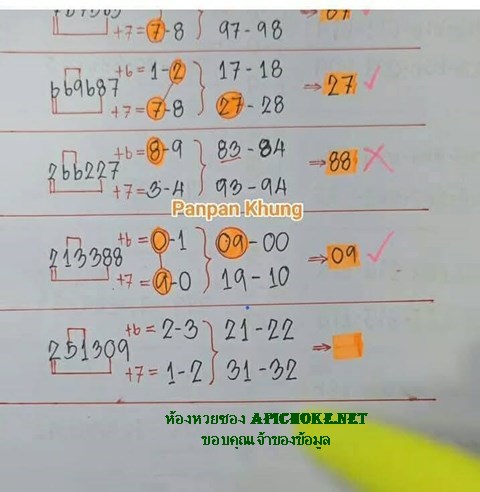 +7=7-8 97-98
+6=1-2 17-18
669687 ⇒27 ✓
+7=7-8 27-28
+6=8-9 83-84
266227 ⇒88 ✗
+7=3-4 93-94
Panpan Khung
+6=0-1 09-00
213388 →09 ✓
+7=9-0 19-10
+6=2-3 21-22
251309 ⇒
+7=1-2 31-32
ห้องหวยซอง APICHOKE.NET
ขอบคุณเจ้าของข้อมูล